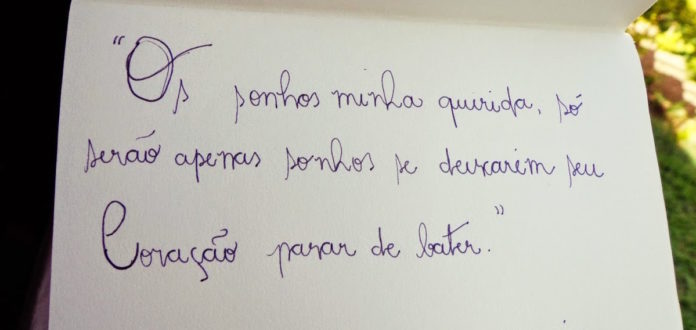 “Os sonhos minha querida, só
serão apenas sonhos se deixarem seu
Coração parar de bater.”